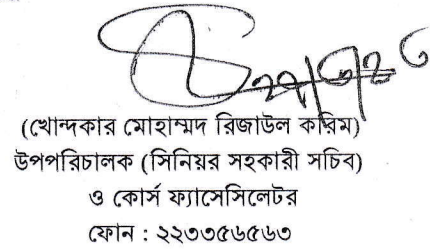 (খোন্দকার মোহাম্মদ রিজাউল করিম)
উপপরিচালক (সিনিয়র সহকারী সচিব)
ও কোর্স ফ্যাসেসিলেটর
ফোন : ২২৩৩৫৬৫৬৩